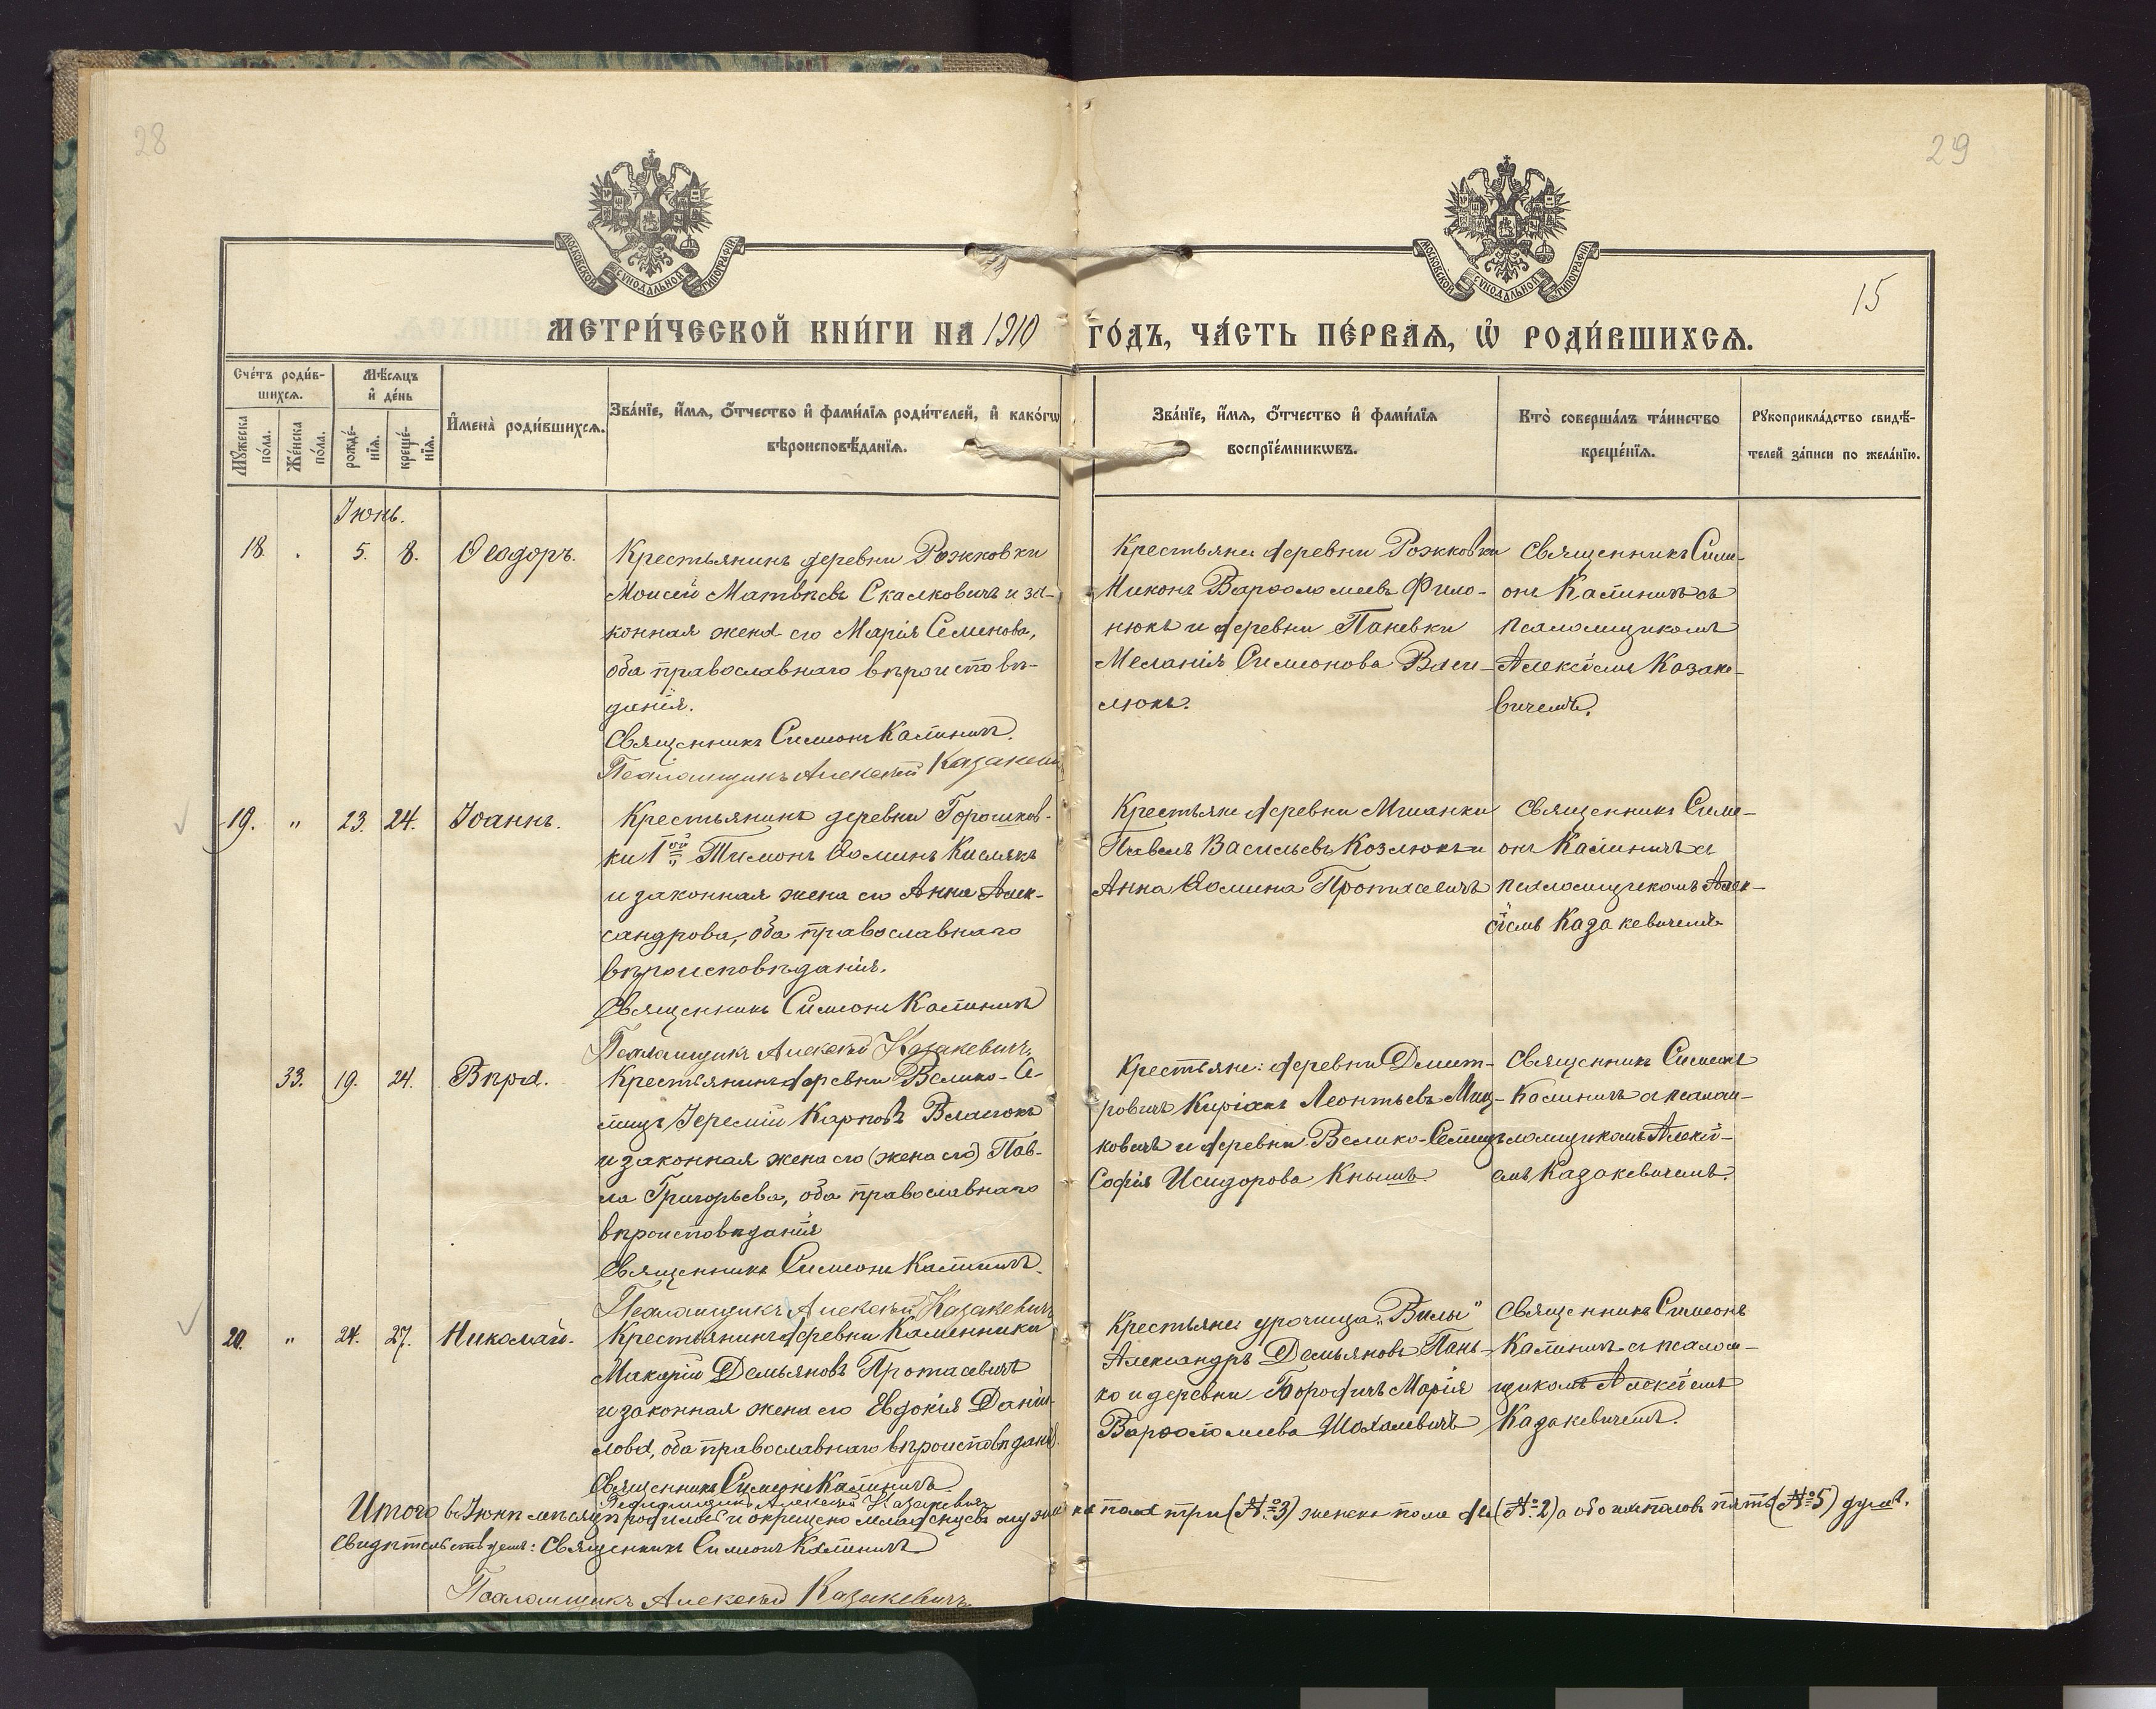 28
29
МОСКОВСКОЙ СѴНОДАЛЬНОЙ ТИПОГРАФІИ
МОСКОВСКОЙ СѴНОДАЛЬНОЙ ТИПОГРАФІИ
15
МЕТРИ́ЧЕСКОЙ КНИ́ГИ НА 1910 ГО́ДЪ, ЧА́СТЬ ПЕ́РВАѦ, Ѡ҆ РОДИ́ВШИХСѦ.
Сче́тъ роди́в-
шихсѧ.
Мѣ́сѧцъ
и҆ де́нь
Мꙋ́жеска
по́ла.
Же́нска
по́ла.
рожде́-
нїѧ.
креще́-
нїѧ.
И҆мена̀ роди́вшихсѧ.
Зва́нїе, и҆́мѧ, о҆́тчество и҆ фами́лїѧ роди́телей, и҆ како́гѡ
вѣроисповѣ́данїѧ.
Зва́нїе, и҆́мѧ, о҆́тчество и҆ фами́лїѧ
воспрїе́мникѡвъ.
Кто̀ соверша́лъ та́инство
креще́нїѧ.
Рꙋкоприкла́дство свидѣ́-
телей за́писи по жела́нїю.
Іюнь.
18. . 5. 8. Ѳеодоръ.
Крестьянинъ деревни Рожковки
Моисей Матвѣевъ Скалковичъ и за-
конная жена его Марія Семенова,
оба православнаго вѣроисповѣ-
данія.
Священникъ Симеонъ Калиничъ.
Псаломщикъ Алексѣй Казакевичъ
Крестьяне: деревни Рожковки
Никонъ Варѳоломеевъ Фило-
нюкъ и деревни Паневки
Меланія Симеонова Васи-
люкъ.
Священникъ Симе-
онъ Калиничъ съ
псаломщикомъ
Алексѣемъ Казаке-
вичемъ.
19. " 23. 24. Іоаннъ.
Крестьянинъ деревни Горошков-
ки 1ой Тимонъ Ѳоминъ Кислякъ
и законная жена его Анна Алек-
сандрова, оба православнаго
вѣроисповѣданія.
Священникъ Симеонъ Калиничъ
Псаломщикъ Алексѣй Казакевичъ.
Крестьяне деревни Мшанки
Павелъ Васильевъ Козлюкъ и
Анна Ѳомина Протасевичъ
Священникъ Симе-
онъ Калиничъ съ
псаломщикомъ Алек-
сѣемъ Казакевичемъ
33. 19. 24. Вѣра.
Крестьянинъ деревни Велико-Се-
лищъ Іеремій Карповъ Власюкъ
и законная жена его (жена его) Пав-
ла Григорьева, оба православнаго
вѣроисповѣданія
Священникъ Симеонъ Калиничъ.
Псаломщикъ Алексѣй Казакевичъ
Крестьяне: деревни Дмит-
ровичъ Киріакъ Леонтьевъ Миц-
кевичъ и деревни Велико-Селищъ
Софія Исидорова Кнышъ.
Священникъ Симеонъ
Калиничъ съ псалом-
ломщикомъ Алексѣ-
емъ Казакевичемъ.
20. " 24. 27. Николай.
Крестьянинъ деревни Каменники
Макарій Демьяновъ Протасевичъ
и законная жена его Евдокія Дани-
лова, оба православнаго вѣроисповѣданія.
Священникъ Симеонъ Калиничъ.
Псаломщикъ Алексѣй Казакевичъ
Крестьяне: урочища „Вилы"
Александръ Демьяновъ Пань-
ко и деревни Бородичъ Марія
Варѳоломеева Шохалевичъ
Священникъ Симеонъ
Калиничъ съ псалом-
щикомъ Алексѣемъ
Казакевичемъ.
Итого въ Іюнѣ мѣсяцѣ родилось и окрещено младенцевъ мужеска пола три (№ 3) женска пола два (№ 2) а обоихъ половъ пять (№ 5) душъ.
Свидѣтельствуемъ: Священникъ Симеонъ Калиничъ
Псаломщикъ Алексѣй Казакевичъ